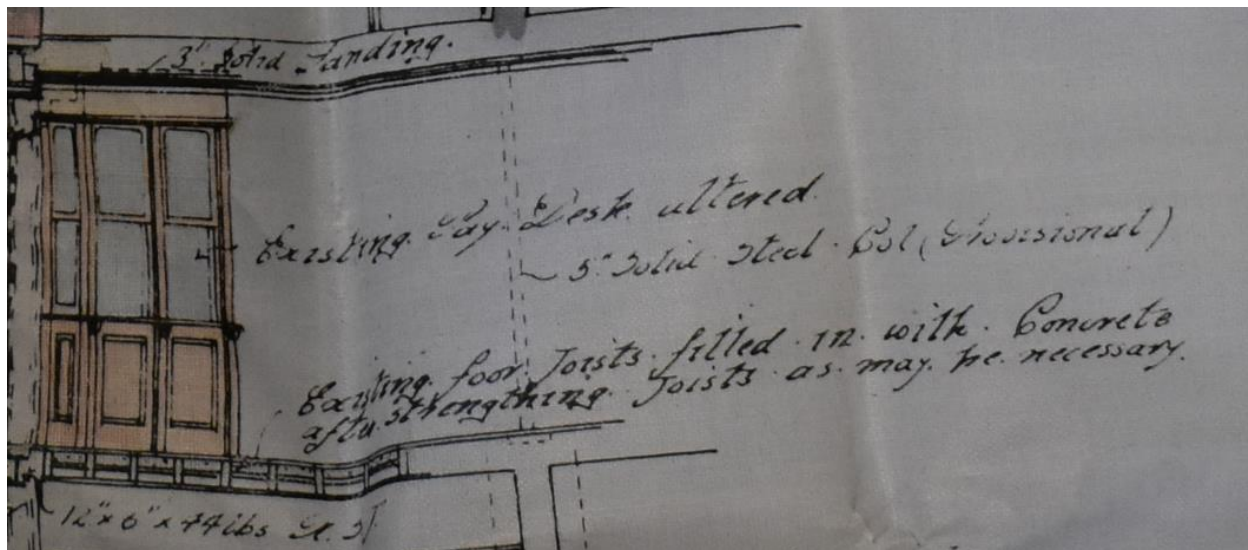 3" Solid Landing.
Existing Pay Desk altered.
5" Solid Steel Col (Provisional)
Existing foor Joists filled in with Concrete
after strengthing Joists as may be necessary.
12" x 6" x 44 lbs